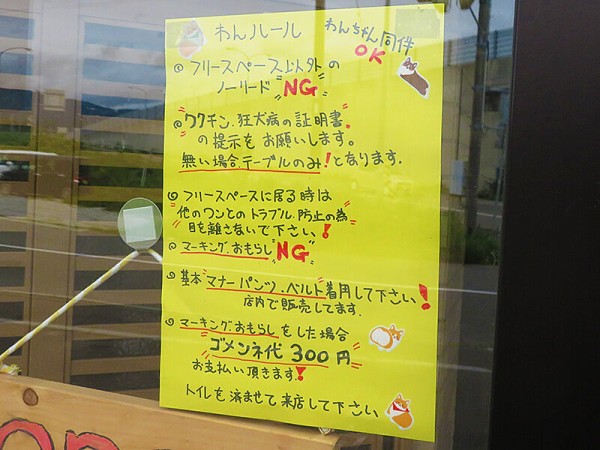 わんルール わんちゃん同伴
OK
◎ フリースペース以外の
ノーリード "NG"
◎ "ワクチン、狂犬病の証明書"
の提示をお願いします。
無い場合テーブルのみ!となります.
◎ フリースペースに居る時は
他のワンとのトラブル防止の為
目を離さないで下さい!
◎ マーキング、おもらし "NG"
◎ 基本"マナーパンツ、ベルト"着用して下さい!
店内で販売してます.
◎ マーキング、おもらしをした場合
"ゴメンネ代 300円"
お支払い頂きます!
トイレを済ませて来店して下さい